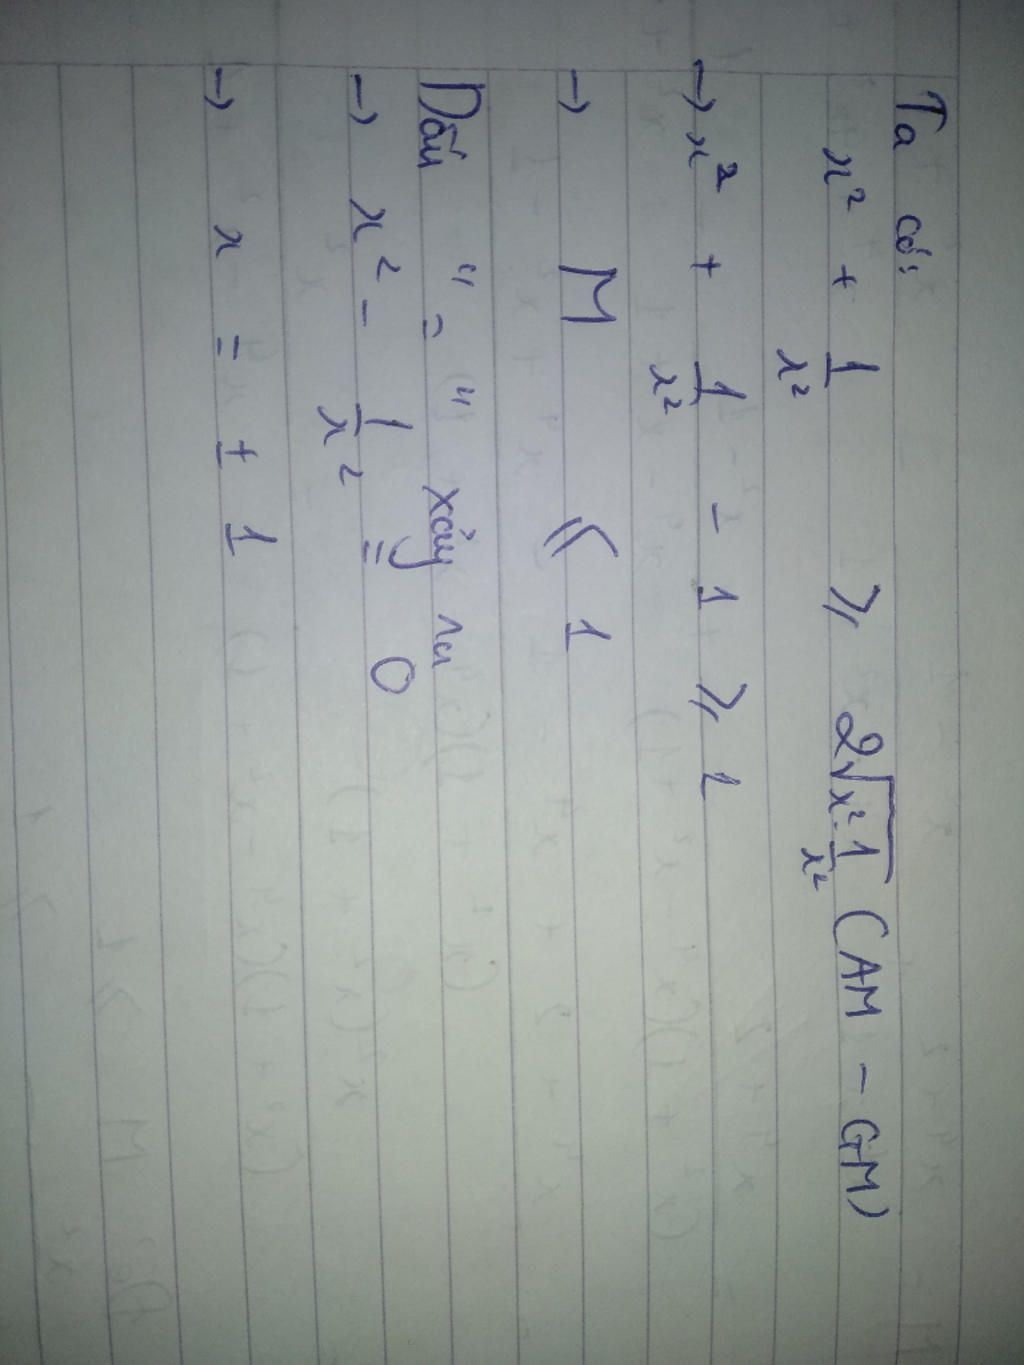 Ta có:
x² + 1/x² ⩾ 2√(x² · 1/x²) (AM - GM)
→ x² + 1/x² - 1 ⩾ 1
→ M ⩽ 1
Dấu " = " xảy ra
→ x² - 1/x² = 0
→ x = ± 1